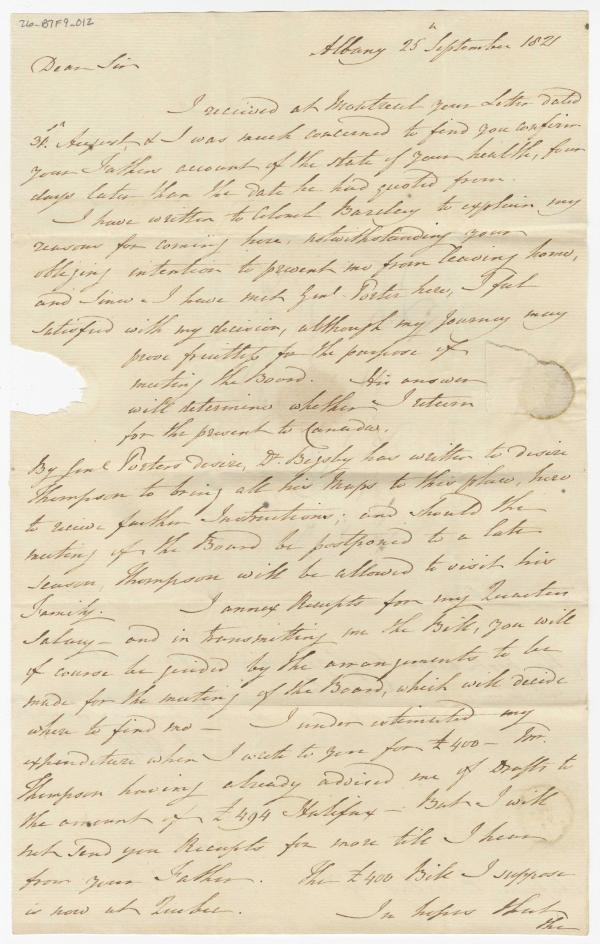 26-B7F9-012
Albany 25th September 1821
Dear Sir
I received at Montreal your Letter dated
31st August, & I was much concerned to find you confirm
your Fathers account of the state of your health, four
days later than the date he had quoted from.
I have written to Colonel Barclay to explain my
reasons for coming here, notwithstanding your
obliging intention to prevent me from leaving home,
and since I have met Genl. Porter here, I feel
satisfied with my decision, although my Journey may
prove fruitless for the purpose of
meeting the Board. His answer
will determine whether I return
for the present to Canada.
By Genl Porters desire, Dr. Bigsby has written to desire
Thompson to bring all his Maps to this place, here
to receive further Instructions; and should the
meeting of the Board be postponed to a late
season, Thompson will be allowed to visit his
Family. I annex Receipts for my Quarters
Salary — and in transmitting me the Bill, you will
of course be guided by the arrangements to be
made for the meeting of the Board, which will decide
where to find me — I under estimated my
expenditure when I wrote to you for £400 — Mr.
Thompson having already advised me of Drafts to
the amount of £494 Halifax — But I will
not send you Receipts for more till I hear
from your Father. The £400 Bill I suppose
is now at Quebec. In hopes that
the